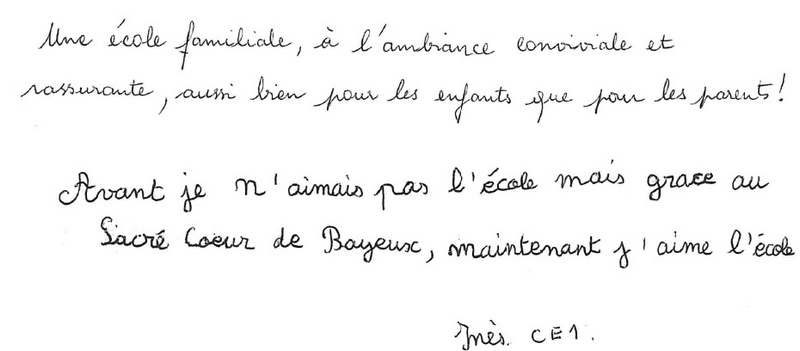 Une école familiale, à l'ambiance conviviale et
rassurante, aussi bien pour les enfants que pour les parents!
Avant je n'aimais pas l'école mais grace au
Sacré Coeur de Bayeux, maintenant j'aime l'école
Inès. CE1.